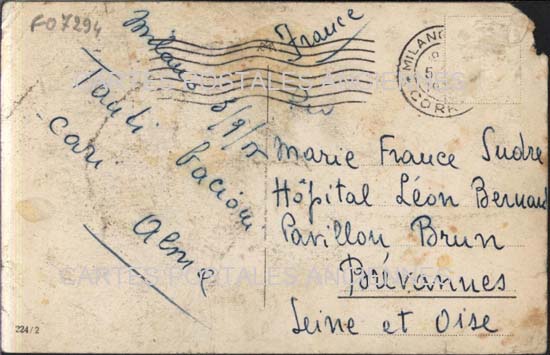 F07294
France
Milano 5/9/
Tanti bacioni
cari
MILANO
CORR
Marie France Sudre
Hôpital Léon Bernard
Pavillon Brun
Brévannes
Seine et Oise
CARTES POSTALES ANCIENNES
CARTES POSTALES ANCIENNES
224/2